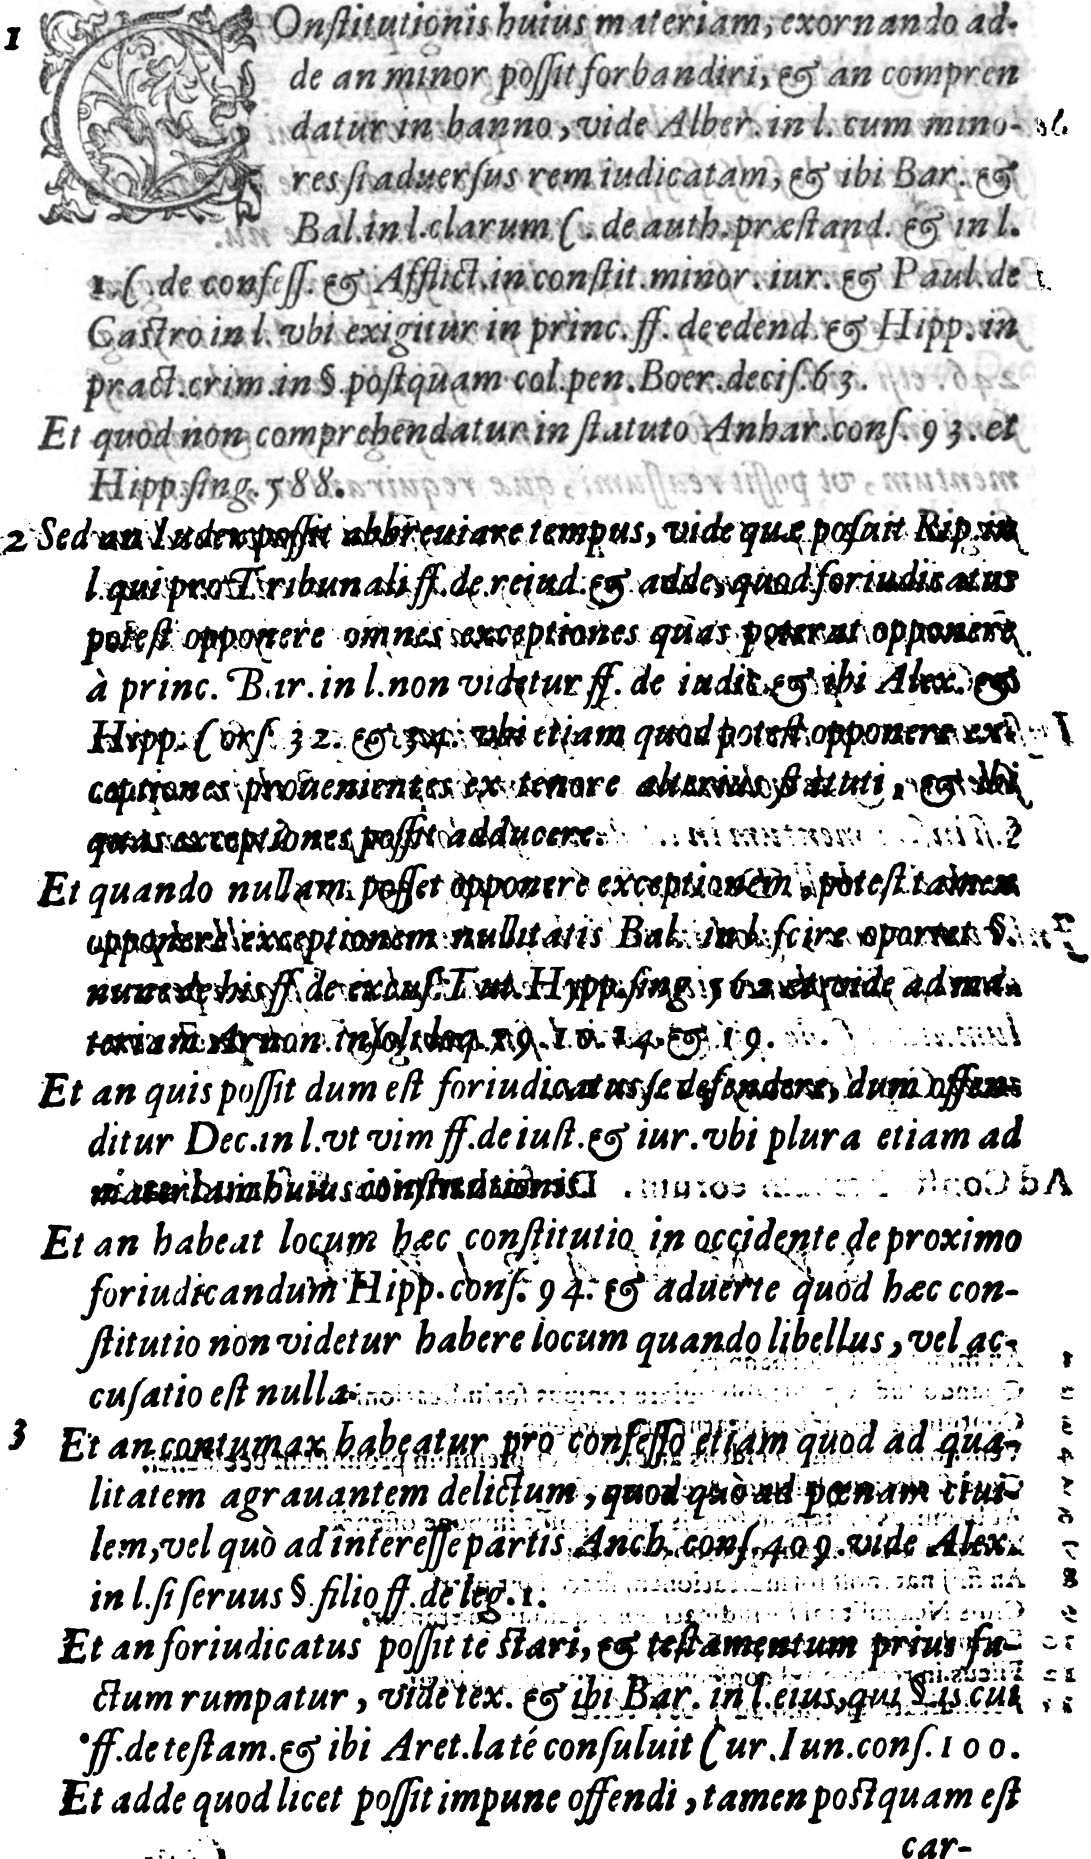 1 COnſtitutionis huius materiam, exornando ad-
de an minor poſſit forbandiri, & an compren
datur in banno, vide Alber. in l. cum mino-
res ſi aduerſus rem iudicatam, & ibi Bar. &
Bal. in l. clarum C. de auth. præſtand. & in l.
1. C. de confeſſ. & Afflict. in conſtit. minor. iur. & Paul. de
Caſtro in l. vbi exigitur in princ. ff. de edend. & Hipp. in
pract. crim. in §. poſtquam col. pen. Boer. deciſ. 63.
Et quod non comprehendatur in ſtatuto Anhar. conſ. 93. et
Hipp. ſing. 588.
2 Sed an Iudex poſſit abbreuiare tempus, vide quæ poſuit Rip. in
l. qui pro Tribunali ff. de reiud. & adde, quod foriudicatus
poteſt opponere omnes exceptiones quas poterat opponere
à princ. Bar. in l. non videtur ff. de iudic. & ibi Alex. &
Hipp. Conſ. 32. & 34. vbi etiam quod poteſt opponere ex-
ceptiones prouenientes ex tenore alterius ſtatuti, & ibi
quas exceptiones poſſit adducere.
Et quando nullam poſſet opponere exceptionem, poteſt tamen
opponere exceptionem nullitatis Bal. in l. ſcire oportet §.
nunc de his ff. de excuſ. Tut. Hypp. ſing. 562 et vide ad ma-
teriam 9. 10. 14. & 19.
Et an quis poſſit dum eſt foriudicatus ſe defendere, dum offen-
ditur Dec. in l. vt vim ff. de iuſt. & iur. vbi plura etiam ad
materiam huius conſtitutionis.
Et an habeat locum hæc conſtitutio in occidente de proximo
foriudicandum Hipp. conſ. 94. & aduerte quod hæc con-
ſtitutio non videtur habere locum quando libellus, vel ac-
cuſatio eſt nulla.
3 Et an contumax habeatur pro confeſſo etiam quod ad qua-
litatem agrauantem delictum, quod quò ad pœnam ciui-
lem, vel quò ad intereſſe partis Anch. conſ. 409. vide Alex.
in l. ſi ſeruus §. filio ff. de leg. 1.
Et an foriudicatus poſſit te ſtari, & teſtamentum prius fa-
ctum rumpatur, vide tex. & ibi Bar. in l. eius, qui §. is cui
ff. de teſtam. & ibi Aret. laté conſuluit Cur. Iun. conſ. 100.
Et adde quod licet poſſit impune offendi, tamen poſtquam eſt
car-